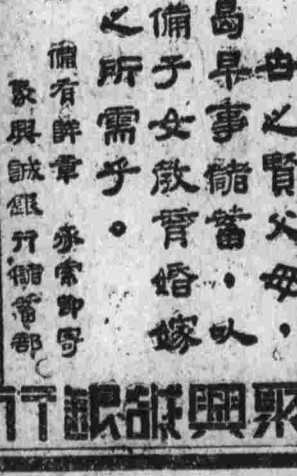 世之賢父母，
曷早事儲蓄，以
備子女教育婚嫁
之所需乎。
備有詳章　承索即寄
聚興誠銀行儲蓄部
聚興誠銀行